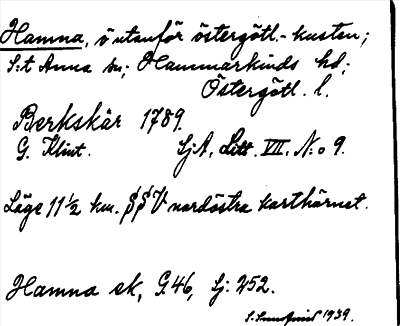 Hamna, ö utanför östergötl.-kusten;
S:t Anna sn; Hammarkinds hd;
Östergötl. l.
Berkskär 1789.
G. Klint. SjA, Litt. VII. N:o 9.
Läge 11½ km. SSV nordöstra karthörnet.
Hamna ek, G.46, Sj: 252.
1939.